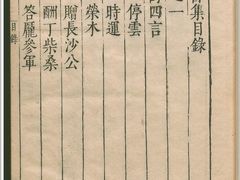 集目錄
之一
四言
停雲
時運
榮木
贈長沙公
酬丁柴桑
答龐參軍
目錄